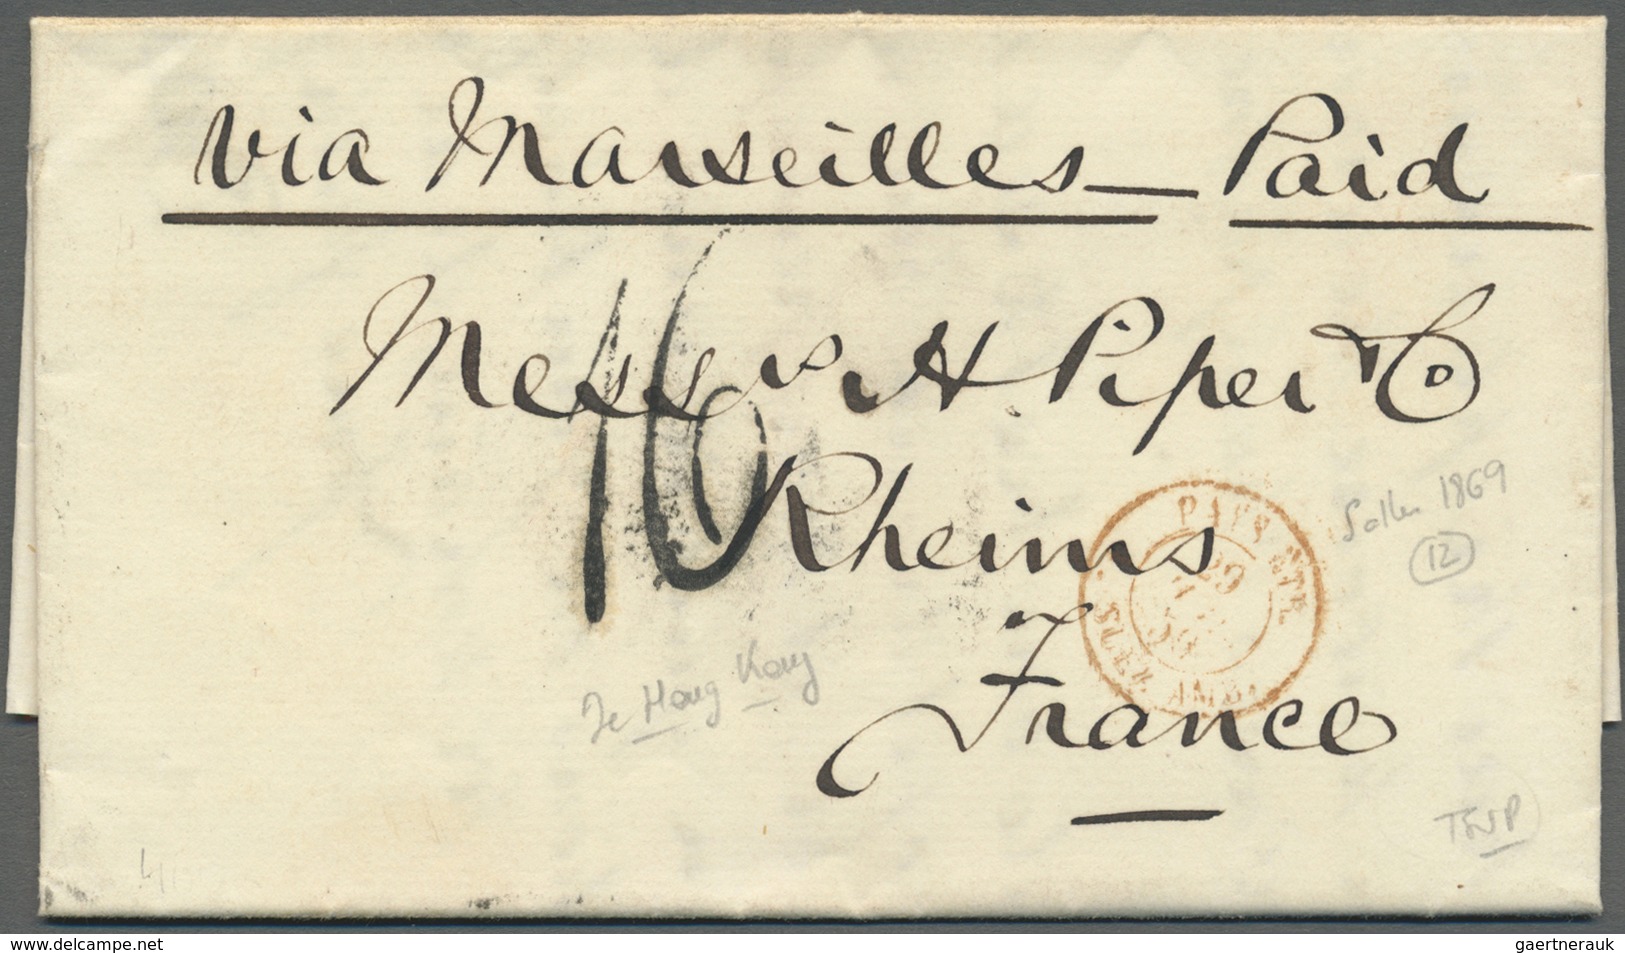 via Marseilles — Paid
Messrs H Piper & Co
16
Rheims
France
PAYS ETR.
29
Salles 1869
12
de Hong Kong
www.delcampe.net
gaertnerauk